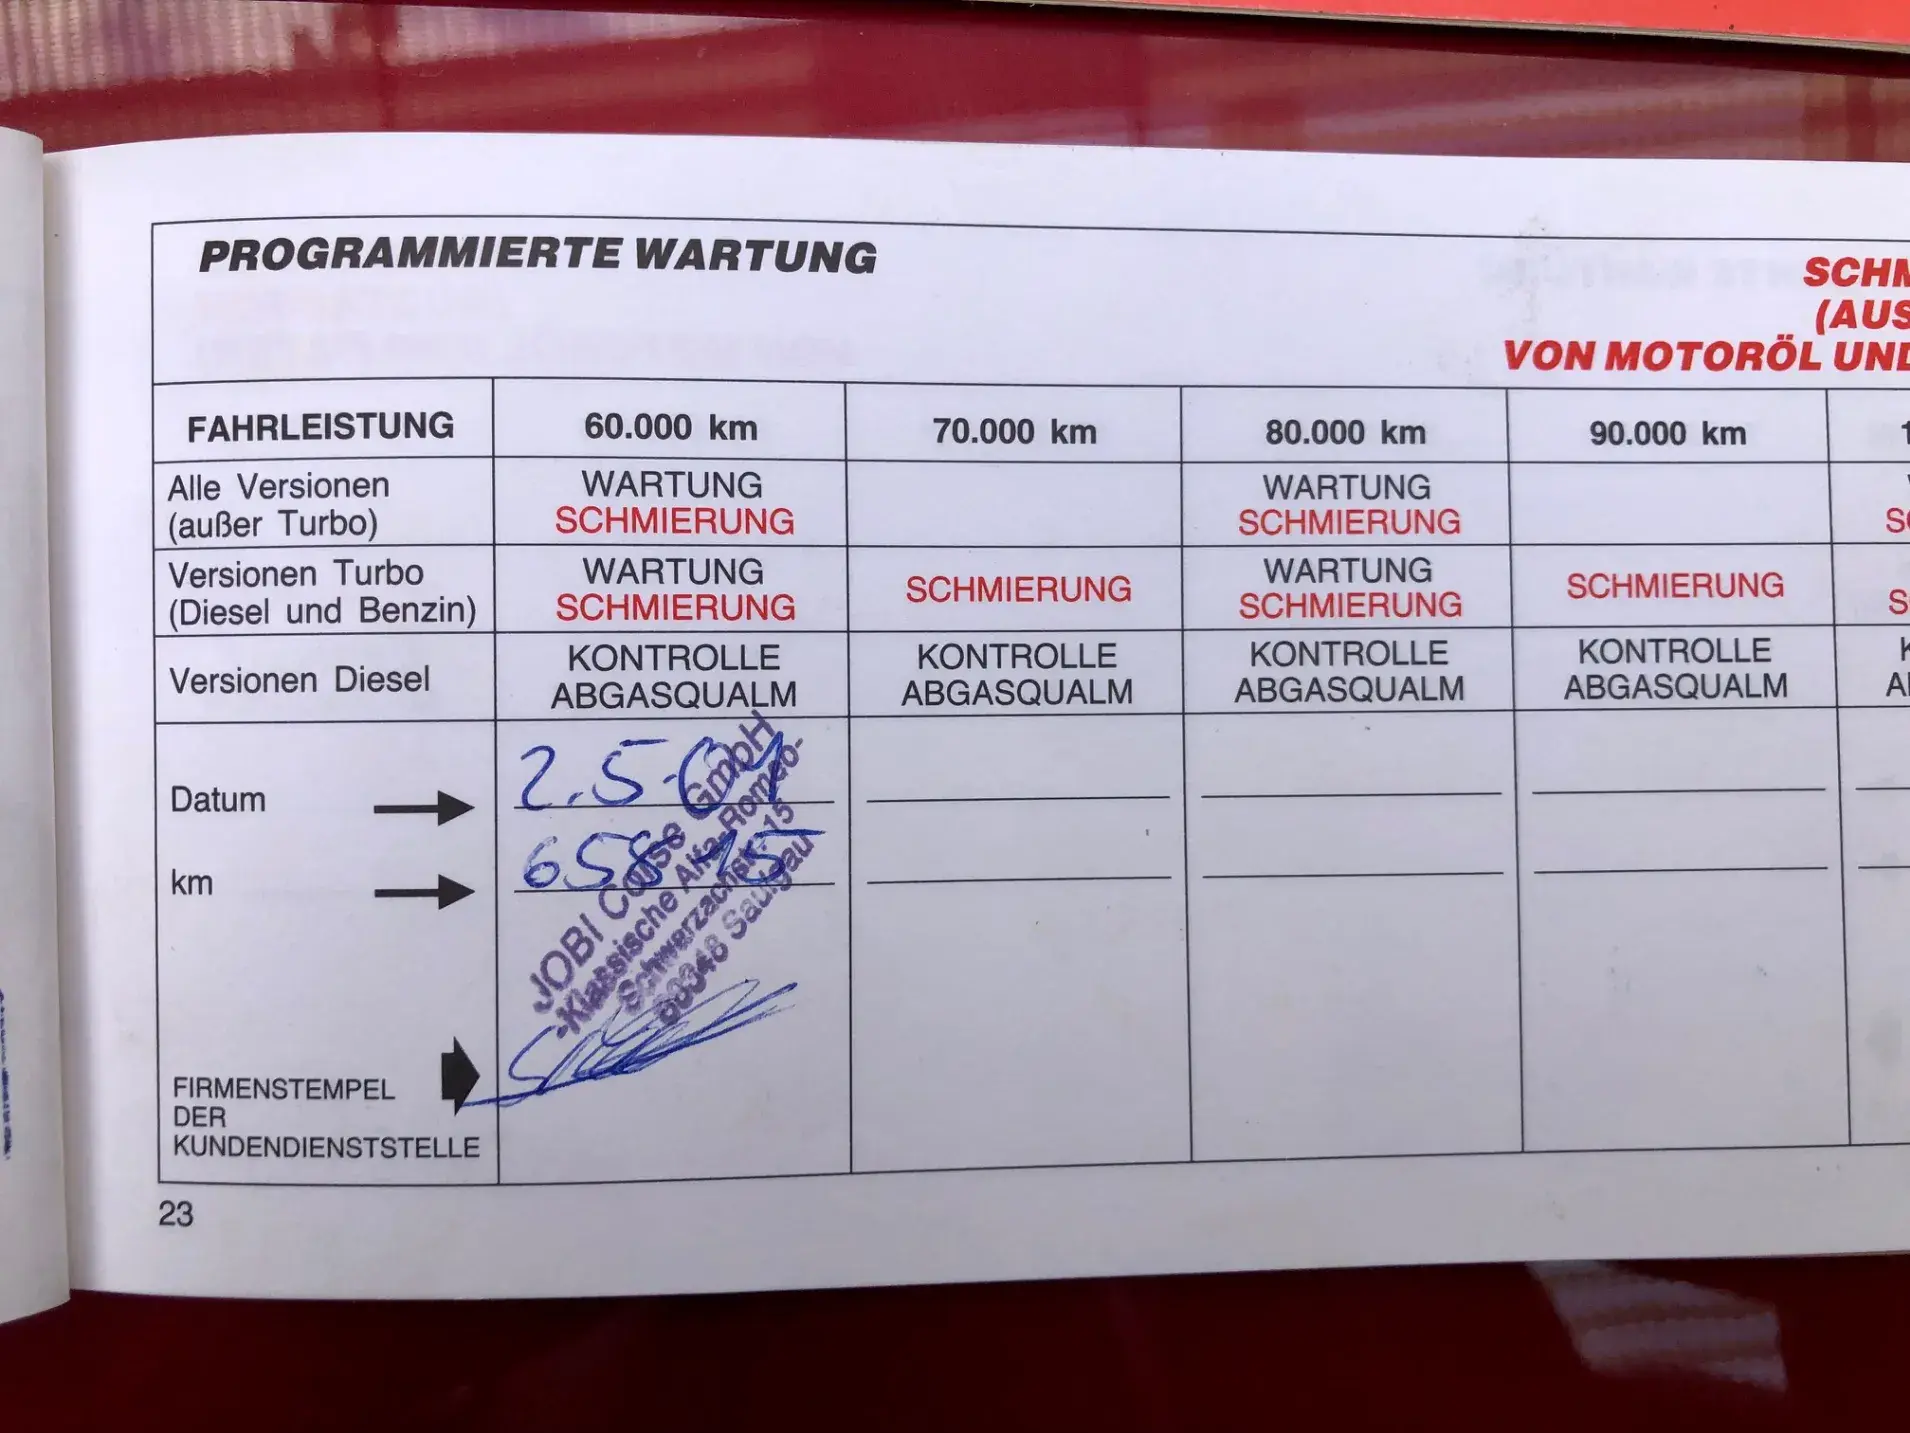 PROGRAMMIERTE WARTUNG
SCHM
(AUS
VON MOTORÖL UND
FAHRLEISTUNG 60.000 km 70.000 km 80.000 km 90.000 km 1
Alle Versionen
(außer Turbo)
WARTUNG
SCHMIERUNG
WARTUNG
SCHMIERUNG
Versionen Turbo
(Diesel und Benzin)
WARTUNG
SCHMIERUNG
SCHMIERUNG
WARTUNG
SCHMIERUNG
SCHMIERUNG
Versionen Diesel
KONTROLLE
ABGASQUALM
KONTROLLE
ABGASQUALM
KONTROLLE
ABGASQUALM
KONTROLLE
ABGASQUALM
Datum 2.5.01
km 65815
JOBI Course GmbH
-Klassische Alfa-Romeo-
Schwarzachstr. 15
88348 Saulgau
FIRMENSTEMPEL
DER
KUNDENDIENSTSTELLE
23